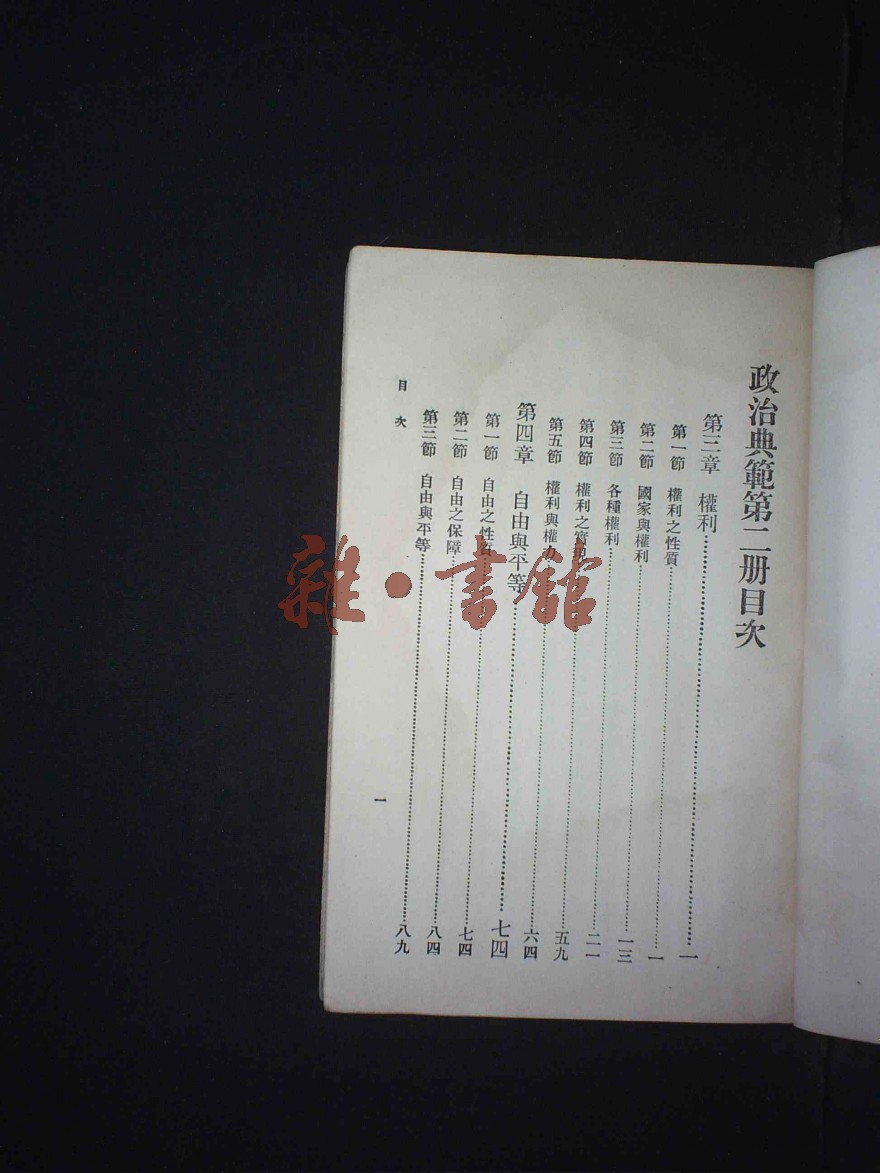 政治典範第二册目次
第三章 權利……一
第一節 權利之性質……一
第二節 國家與權利……一三
第三節 各種權利……二一
第四節 權利之實現……五九
第五節 權利與權力……六四
第四章 自由與平等……七四
第一節 自由之性質……七四
第二節 自由之保障……八四
第三節 自由與平等……八九
目次
一
雜·書館